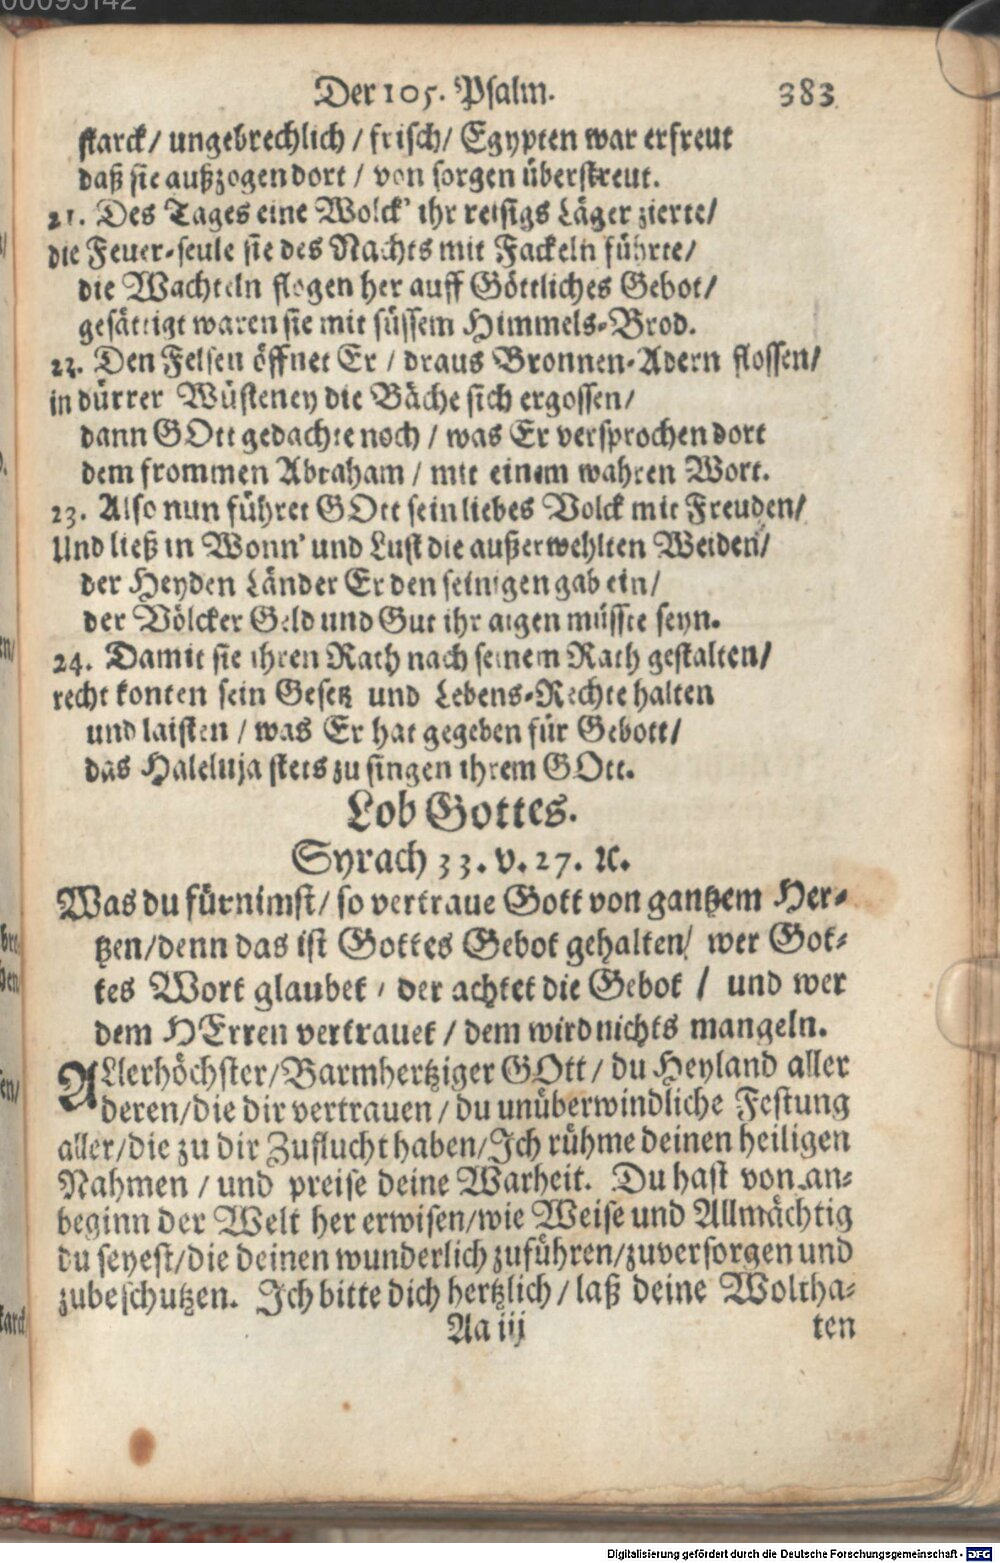 00095142
Der 105. Psalm. 383
starck/ ungebrechlich / frisch/ Egypten war erfreut
daß sie außzogen dort / von sorgen überstreut.
21. Des Tages eine Wolck' ihr reisigs Läger zierte/
die Feuer-seule sie des Nachts mit Fackeln führte/
die Wachteln flogen her auff Göttliches Gebot/
gesättigt waren sie mit süssem Himmels-Brod.
22. Den Felsen öffnet Er / draus Bronnen-Adern flossen/
in dürrer Wüsteney die Bäche sich ergossen/
dann GOtt gedachte noch / was Er versprochen dort
dem frommen Abraham / mit einem wahren Wort.
23. Also nun führet GOtt sein liebes Volck mit Freuden/
Und ließ in Wonn' und Lust die außerwehlten Weiden/
der Heyden Länder Er den seinigen gab ein/
der Völcker Geld und Gut ihr aigen müsste seyn.
24. Damit sie ihren Rath nach seinem Rath gestalten/
recht konten sein Gesetz und Lebens-Rechte halten
und laisten / was Er hat gegeben für Gebott/
das Haleluja stets zu singen ihrem GOtt.
Lob Gottes.
Syrach 33. v. 27. ꝛc.
Was du fürnimst/ so vertraue Gott von gantzem Her-
tzen/denn das ist Gottes Gebot gehalten/ wer Got-
tes Wort glaubet / der achtet die Gebot / und wer
dem HErren vertrauet / dem wird nichts mangeln.
ALlerhöchster/Barmhertziger GOtt / du Heyland aller
deren/die dir vertrauen / du unüberwindliche Festung
aller/die zu dir Zuflucht haben/Ich rühme deinen heiligen
Nahmen / und preise deine Warheit. Du hast von an-
beginn der Welt her erwisen/wie Weise und Allmächtig
du seyest/die deinen wunderlich zuführen/zuversorgen und
zubeschutzen. Ich bitte dich hertzlich / laß deine Woltha-
Aa iij ten
Digitalisierung gefördert durch die Deutsche Forschungsgemeinschaft - DFG